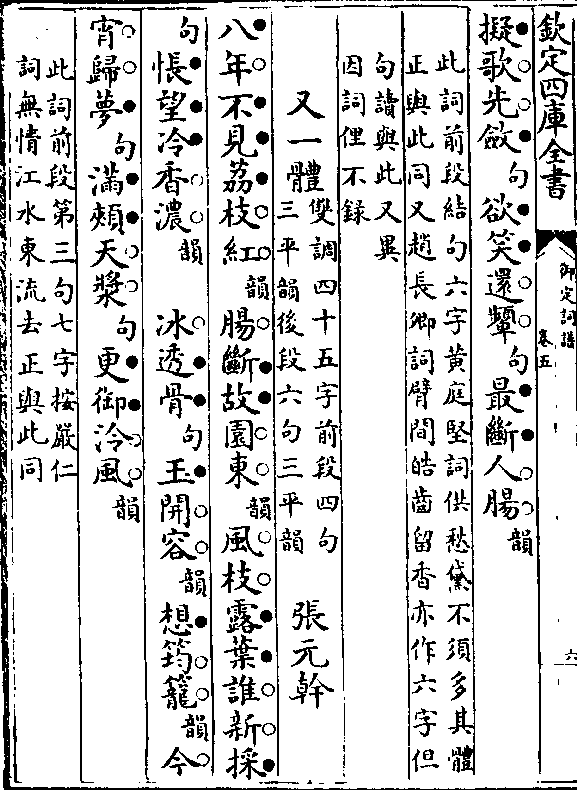 欽定四庫全書
御定詞譜
卷五
六
擬歌先斂句欲笑還顰句最斷人腸韻
此詞前段結句六字黄庭堅詞供愁黛不須多其體
正與此同又趙長卿詞臂間皓齒留香亦作六字但
句讀與此又異
因詞俚不録
又一體
雙調四十五字前段四句
三平韻後段六句三平韻
張元幹
八年不見荔枝紅韻腸斷故園東韻風枝露葉誰新採
句悵望冷香濃韻 冰透骨句玉開容韻想筠籠韻今
宵歸夢句滿頰天漿句更御泠風韻
此詞前段第三句七字按嚴仁
詞無情江水東流去正與此同